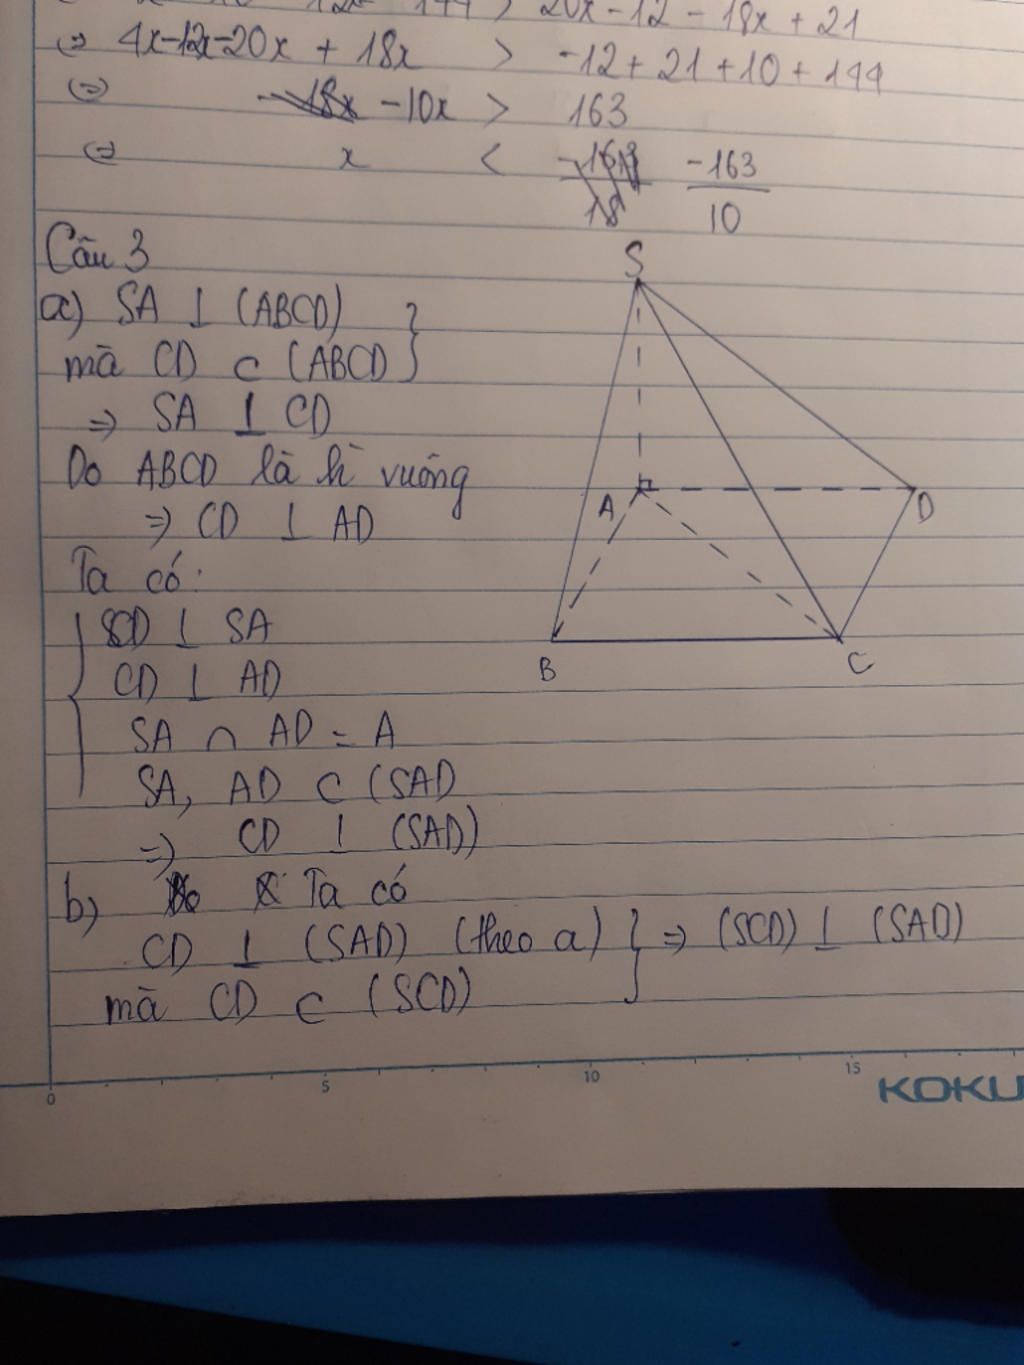 20x - 12 - 18x + 21
⇔ 4x-12x-20x + 18x > -12 + 21 + 10 + 144
⇔ -10x > 163
⇔ x < -163/10
Câu 3
a) SA ⊥ (ABCD)
mà CD ⊂ (ABCD)
⇒ SA ⊥ CD
Do ABCD là h vuông
⇒ CD ⊥ AD
Ta có:
CD ⊥ SA
CD ⊥ AD
SA ∩ AD = A
SA, AD ⊂ (SAD
⇒ CD ⊥ (SAD)
b) Ta có
CD ⊥ (SAD) (theo a) } ⇒ (SCD) ⊥ (SAD)
mà CD ⊂ (SCD)
S
A
D
B
C
0 5 10 15
KOKU